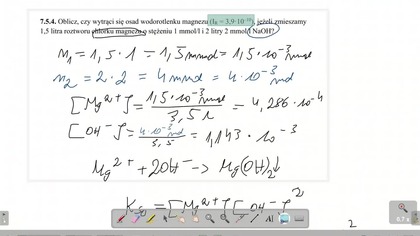 7.5.4. Oblicz, czy wytrąci się osad wodorotlenku magnezu (Iₛ = 3,9·10⁻¹⁰), jeżeli zmieszamy
1,5 litra roztworu chlorku magnezu o stężeniu 1 mmol/l i 2 litry 2 mmol/l NaOH?
n₁ = 1,5 · 1 = 1,5 mmol = 1,5 · 10⁻³ mol
n₂ = 2 · 2 = 4 mmol = 4 · 10⁻³ mol
[Mg²⁺] = 1,5 · 10⁻³ mol / 3,5 l = 4,286 · 10⁻⁴
[OH⁻] = 4 · 10⁻³ mol / 3,5 = 1,143 · 10⁻³
Mg²⁺ + 2OH⁻ → Mg(OH)₂↓
= [Mg²⁺][OH⁻]²
2